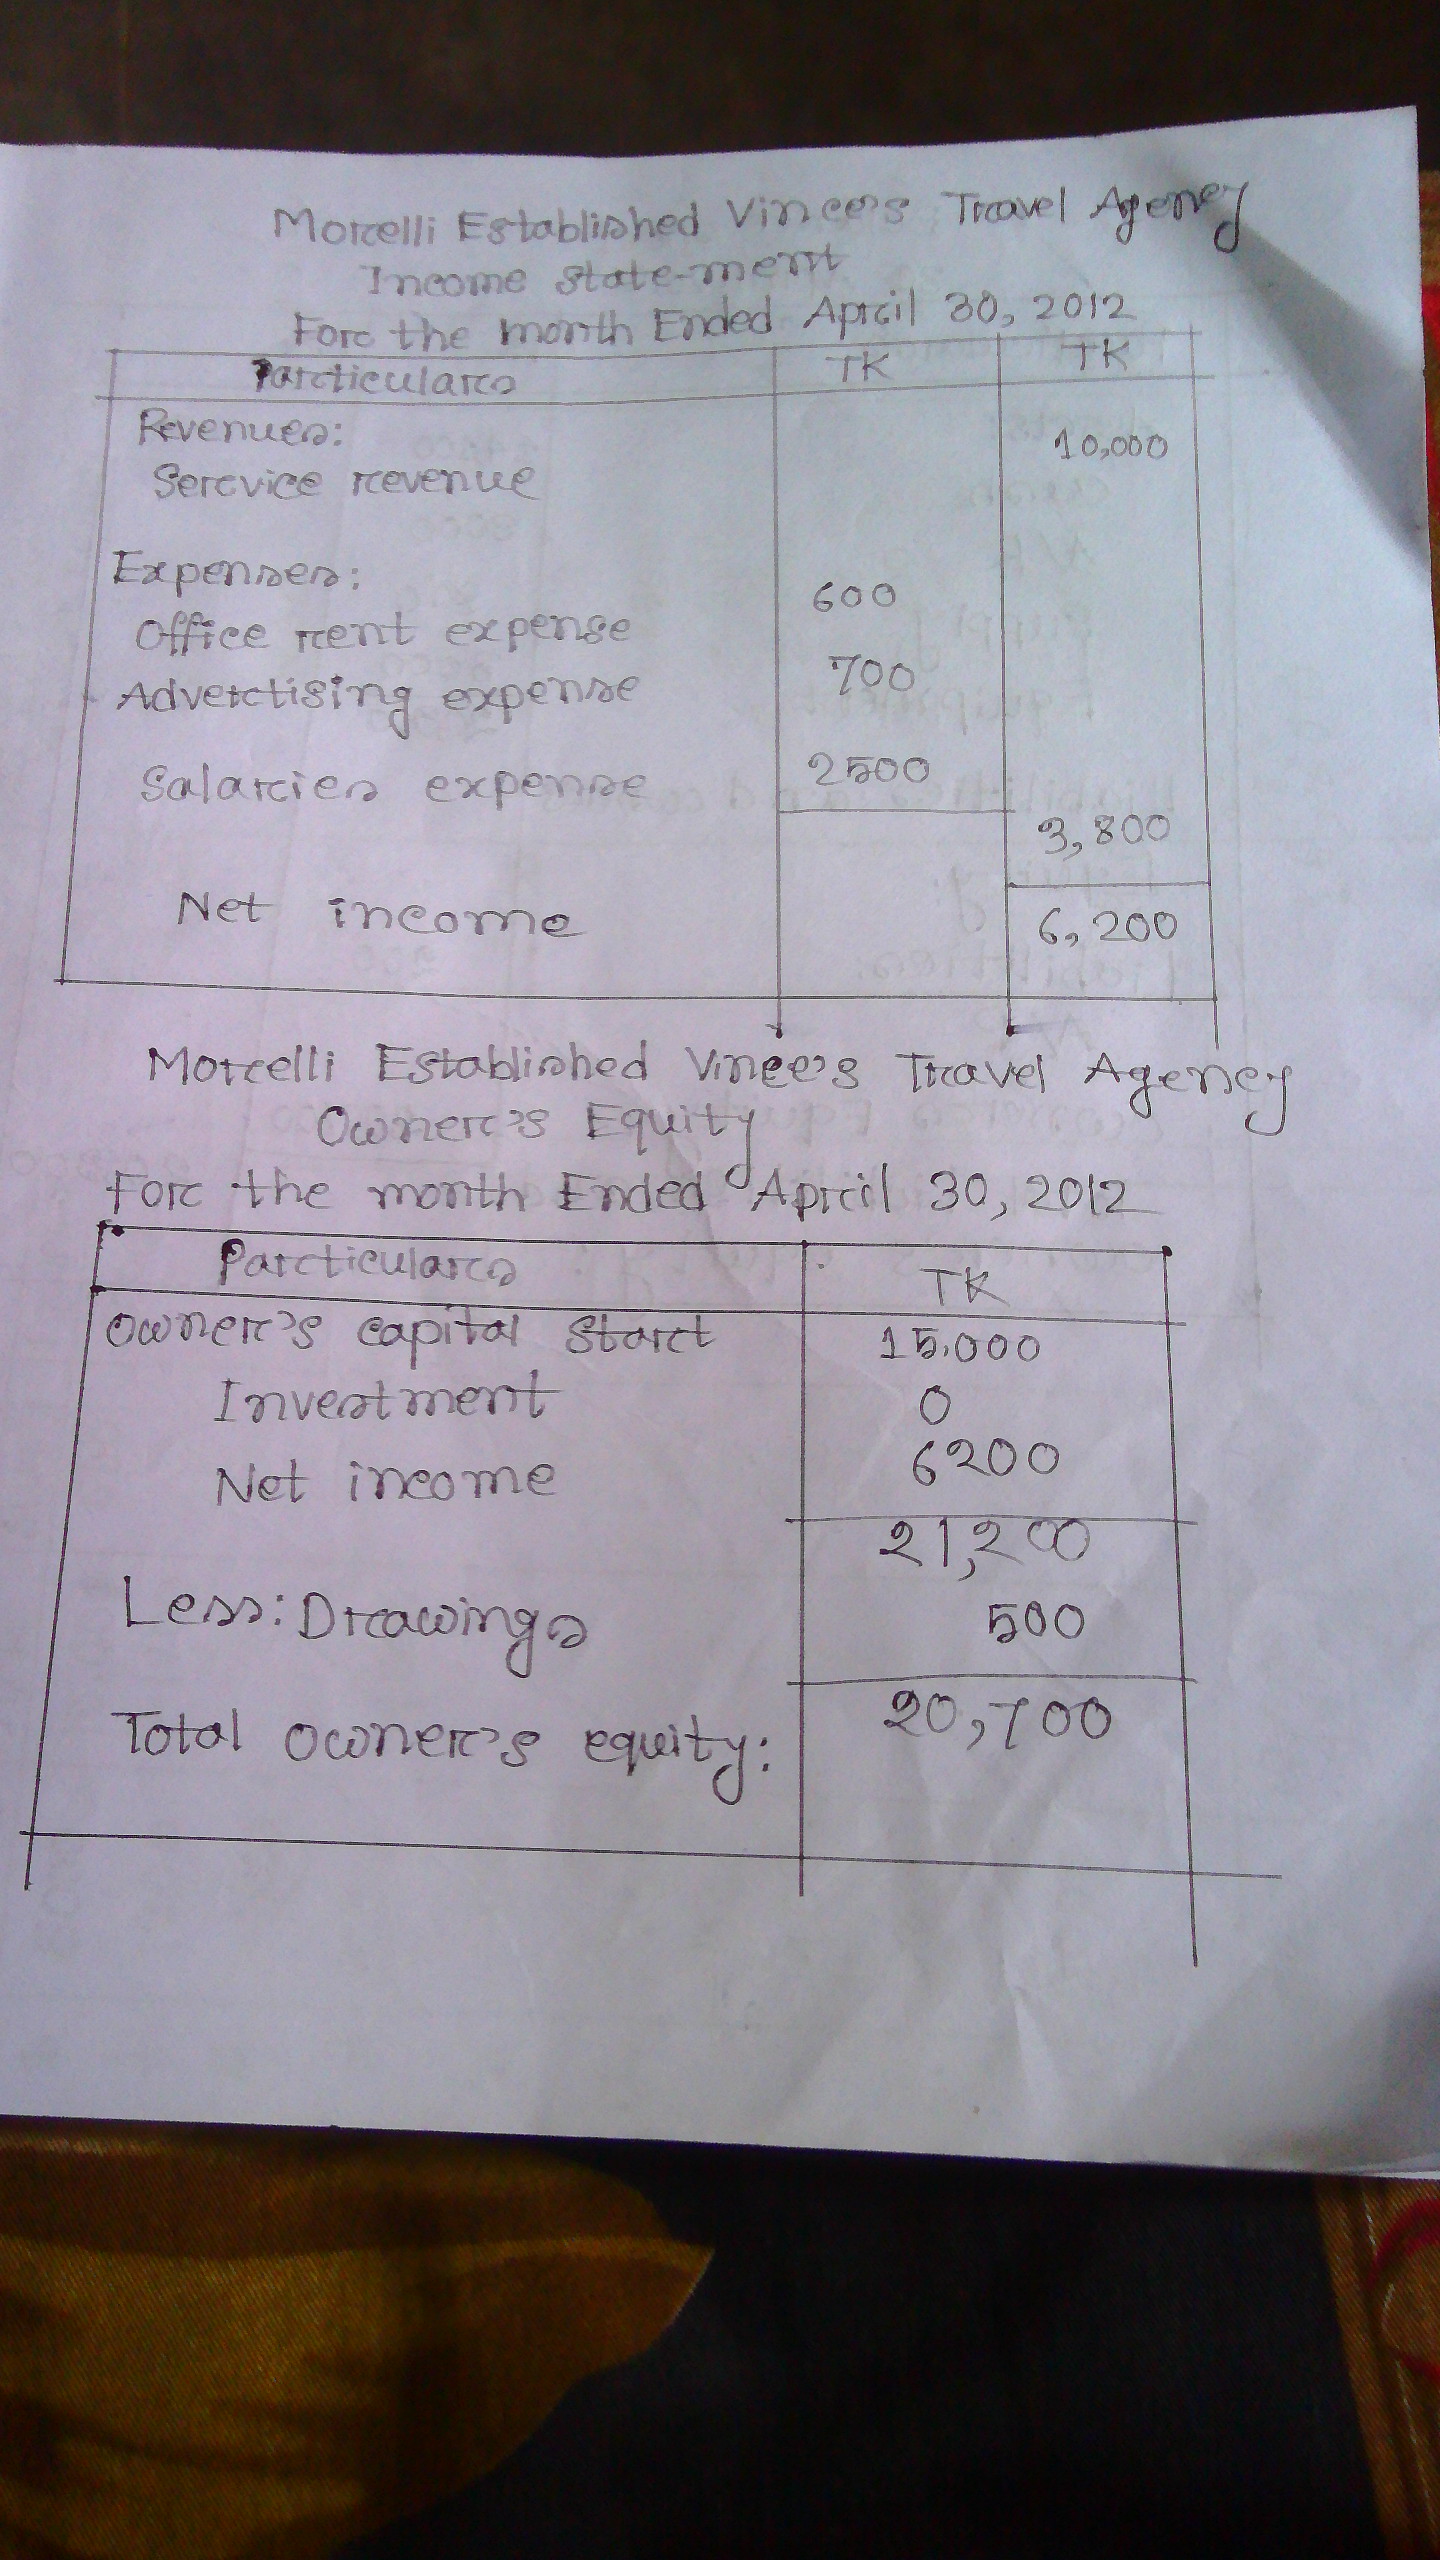 Morcelli Established Vince's Travel Agency
Income state-ment
For the month Ended April 30, 2012
Particulars TK TK
Revenues:
Service revenue 10,000
Expenses:
Office rent expense 600
Advertising expense 700
Salaries expense 2500
3,800
Net income 6,200
Morcelli Established Vince's Travel Agency
Owner's Equity
For the month Ended April 30, 2012
Particulars TK
Owner's capital Start 15,000
Investment 0
Net income 6200
21,200
Less: Drawings 500
Total owner's equity: 20,700